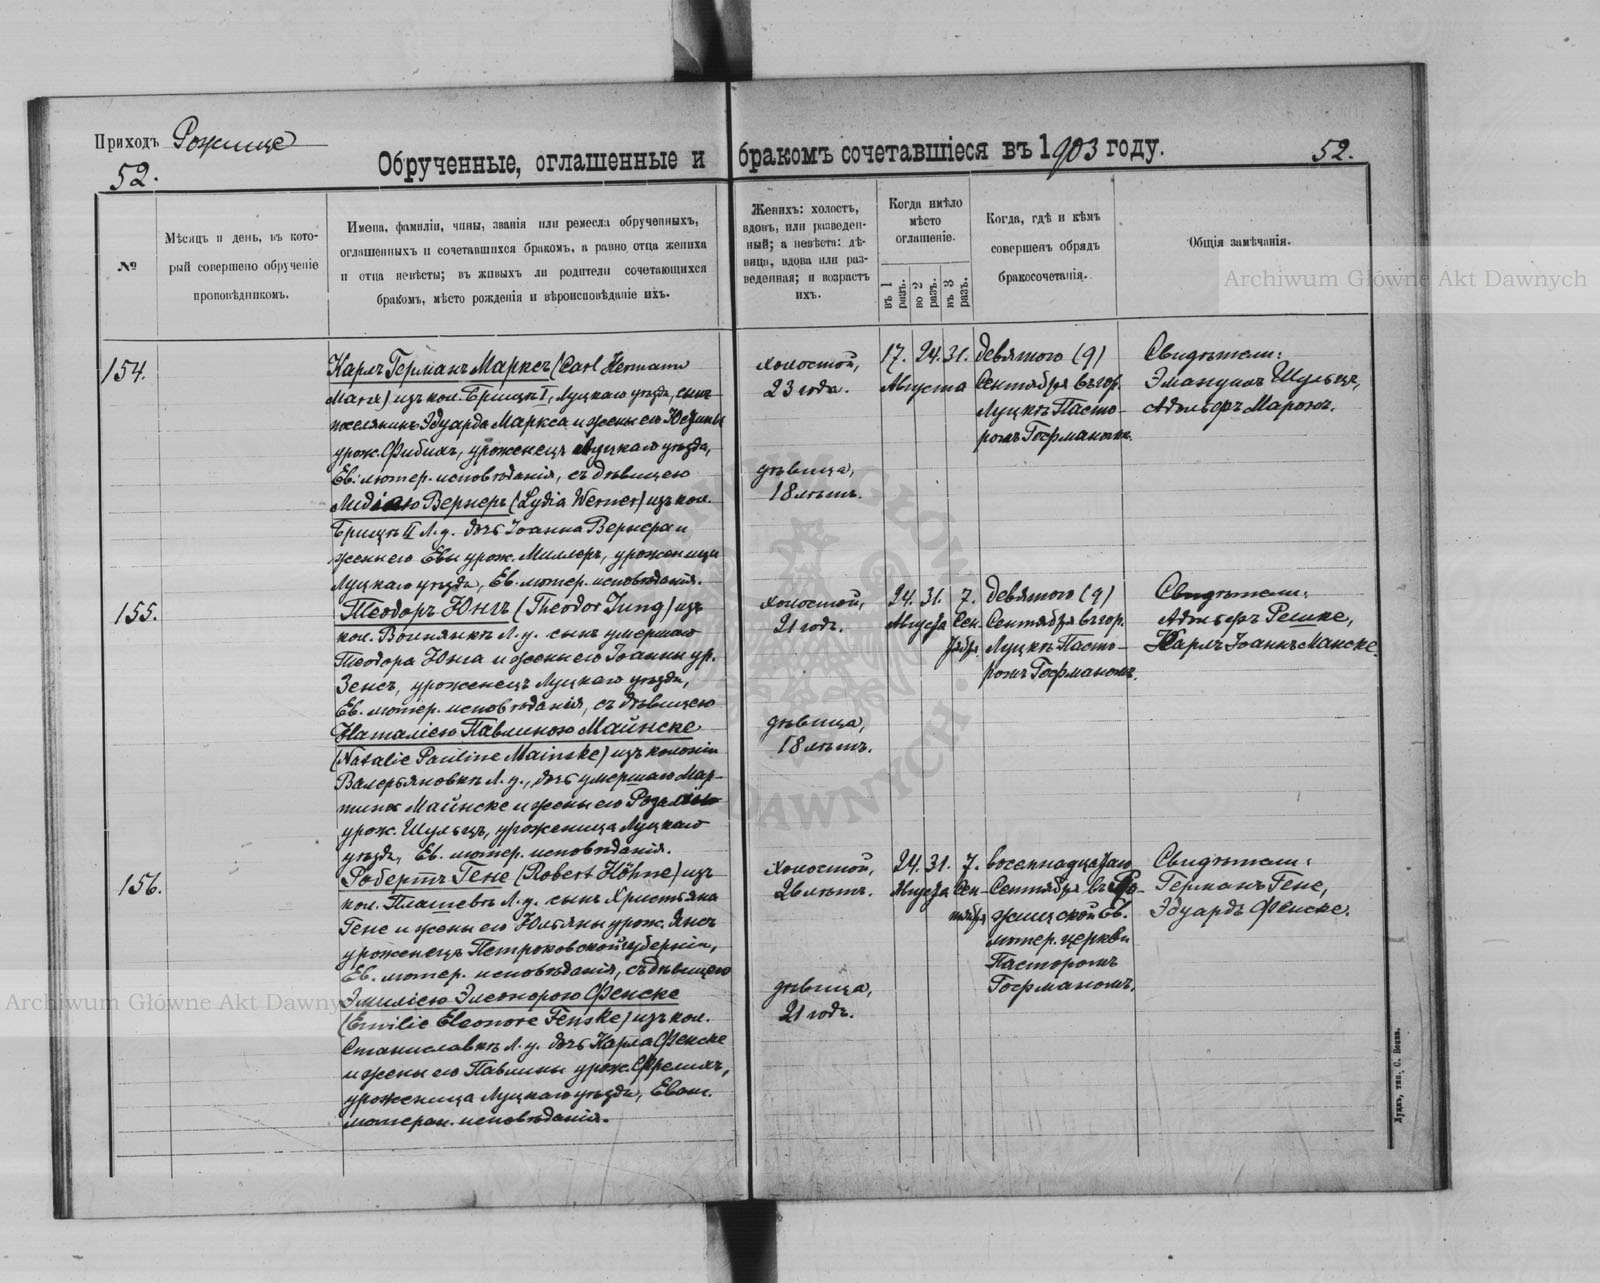 Приходъ Рожище
52.
Обрученные, оглашенные и бракомъ сочетавшіеся въ 1903 году.
52.
№
Мѣсяцъ и день, въ кото-
рый совершено обрученіе
проповѣдникомъ.
Имена, фамиліи, чины, званія или ремесла обрученныхъ,
оглашенныхъ и сочетавшихся бракомъ, а равно отца жениха
и отца невѣсты; въ живыхъ ли родители сочетающихся
бракомъ, мѣсто рожденія и вѣроисповѣданіе ихъ.
Женихъ: холостъ,
вдовъ, или разведен-
ный; а невѣста: дѣ-
вица, вдова или раз-
веденная; и возрастъ
ихъ.
Когда имѣло
мѣсто
оглашеніе.
въ 1 разъ.
во 2 разъ.
въ 3 разъ.
Когда, гдѣ и кѣмъ
совершенъ обрядъ
бракосочетанія.
Общія замѣчанія.
154.
Карлъ Германъ Марксъ (Carl Hermann
Marx) изъ кол. Брищи I, Луцкаго уѣзда, сынъ
поселянина Эдуарда Маркса и жены его Юстины
урож. Фибихъ, уроженецъ Луцкаго уѣзда,
Ев. лютер. исповѣданія, съ дѣвицею
Лидіею Вернеръ (Lydia Werner) изъ кол.
Брищи II Л. у. дочь Іоанна Вернера и
жены его Евы урож. Миллеръ, уроженица
Луцкаго уѣзда, Ев. лютер. исповѣданія.
холостой,
23 года.
дѣвица,
18 лѣтъ.
17. 24. 31.
Августа
девятого (9)
Сентября въ гор.
Луцкѣ Пасто-
ромъ Гофманомъ.
Свидѣтели:
Эмануилъ Шульцъ,
Адольфъ Марокъ.
155.
Теодоръ Юнгъ (Theodor Jung) изъ
кол. Волнянка Л. у. сынъ умершаго
Теодора Юнга и жены его Іоанны ур.
Зенсъ, уроженецъ Луцкаго уѣзда,
Ев. лютер. исповѣданія, съ дѣвицею
Наталіею Павлиною Майнске
(Natalie Pauline Mainske) изъ колоніи
Валерьяновка Л. у., дочь умершаго Мар-
тина Майнске и жены его Розаліи
урож. Шульцъ, уроженица Луцкаго
уѣзда, Ев. лютер. исповѣданія.
холостой,
21 годъ.
дѣвица,
18 лѣтъ.
24. 31. 7.
Августа Сен-
тября
девятого (9)
Сентября въ гор.
Луцкѣ Пасто-
ромъ Гофманомъ.
Свидѣтели:
Адольфъ Решке,
Карлъ Іоаннъ Манске.
156.
Робертъ Гене (Robert Höhne) изъ
кол. Плашево Л. у. сынъ Христьяна
Гене и жены его Юльяны урож. Янсъ
уроженецъ Петроковской губерніи,
Ев. лютер. исповѣданія, съ дѣвицею
Эмиліею Элеонорою Фенске
(Emilie Eleonore Fenske) изъ кол.
Станиславка Л. у. дочь Карла Фенске
и жены его Павлины урож. Фрелихъ,
уроженица Луцкаго уѣзда, Еванг.
лютеран. исповѣданія.
холостой,
26 лѣтъ.
дѣвица,
21 годъ.
24. 31. 7.
Августа Сен-
тября
восемнадцатаго
Сентября въ Ро-
жищской Ев.
лютер. церкви
Пасторомъ
Гофманомъ.
Свидѣтели:
Германъ Гене,
Эдуардъ Фенске.
Луцкъ, тип. С. Бокъ.
Archiwum Główne Akt Dawnych
Archiwum Główne Akt Dawnych